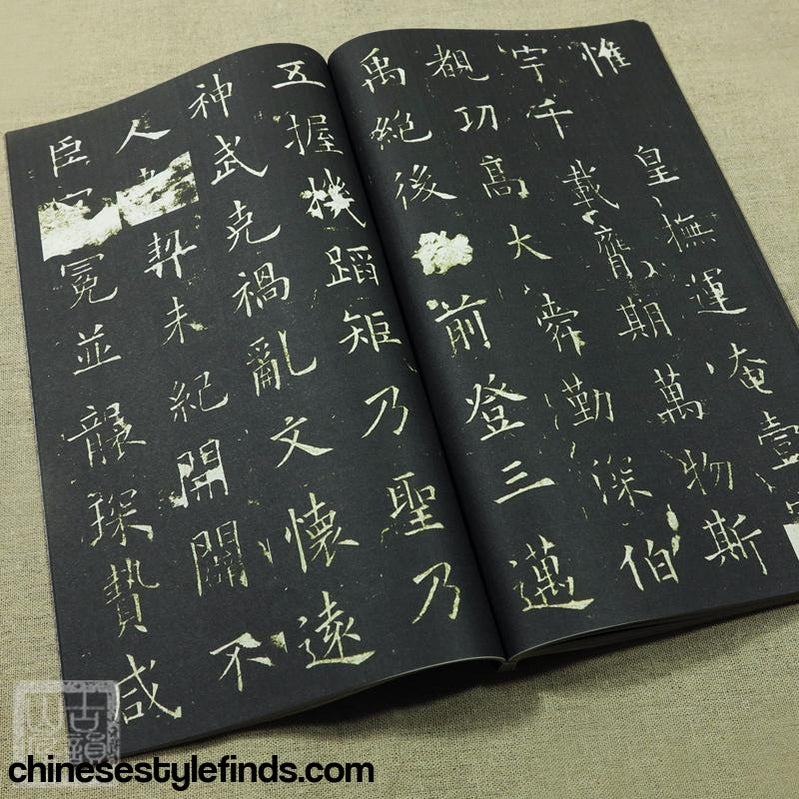 惟皇撫運奄壹
宇千載膺期萬物斯
覩功高大舜勤深伯
禹絕後前登三邁
五握機蹈矩乃聖乃
神武克禍亂文懷遠
人契未紀開闢不
臣冕並襲琛贄咸
chinesestylefinds.com